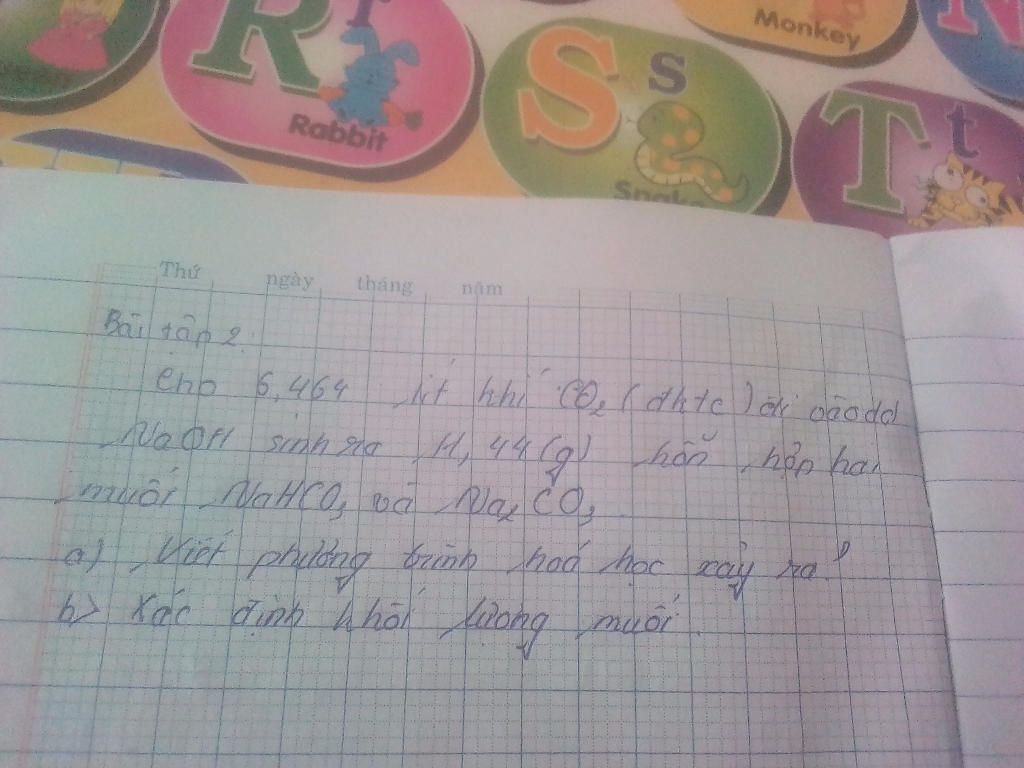 R r
Rabbit
S s
Snake
Monkey
N
T t
Thứ ngày tháng năm
Bài tập 2:
Cho 6,464 lít khí CO₂ (đktc) đi vào dd
NaOH sinh ra 11,44 (g) hỗn hợp hai
muối NaHCO₃ và Na₂CO₃
a) Viết phương trình hoá học xảy ra?
b> Xác định khối lượng muối.